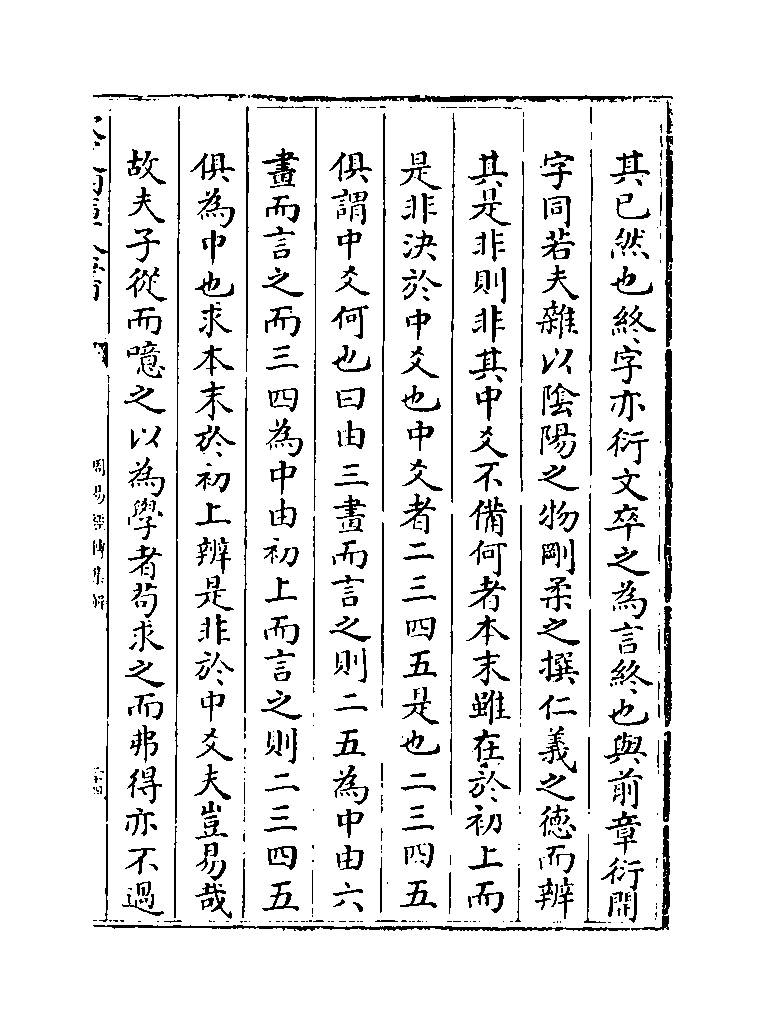 其已然也終字亦衍文卒之為言終也與前章衍開
字同若夫雜以陰陽之物剛柔之撰仁義之德而辨
其是非則非其中爻不備何者本末雖在於初上而
是非決於中爻也中爻者二三四五是也二三四五
俱謂中爻何也曰由三畫而言之則二五為中由六
畫而言之而三四為中由初上而言之則二三四五
俱為中也求本末於初上辨是非於中爻夫豈易哉
故夫子從而噫之以為學者苟求之而弗得亦不過
周易經傳集解